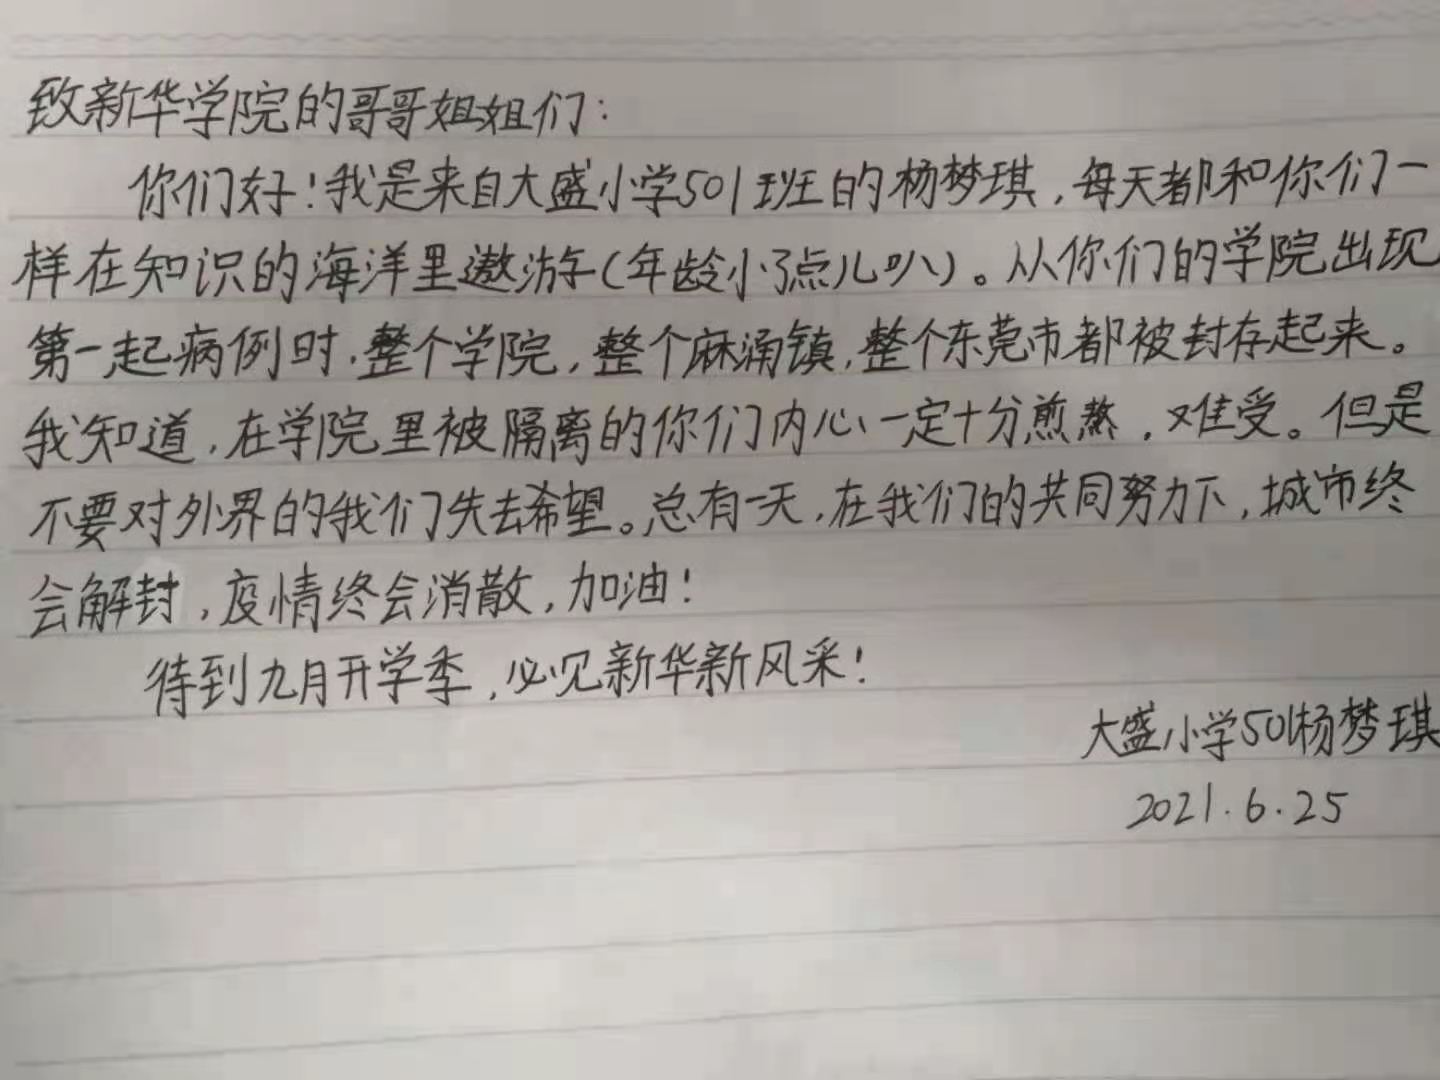 致新华学院的哥哥姐姐们:
你们好!我是来自大盛小学501班的杨梦琪,每天都和你们一
样在知识的海洋里遨游(年龄小了点儿叭)。从你们的学院出现
第一起病例时,整个学院,整个麻涌镇,整个东莞市都被封存起来。
我知道,在学院里被隔离的你们内心一定十分煎熬,难受。但是
不要对外界的我们失去希望。总有一天,在我们的共同努力下,城市终
会解封,疫情终会消散,加油!
待到九月开学季,必见新华新风采!
大盛小学501杨梦琪
2021.6.25